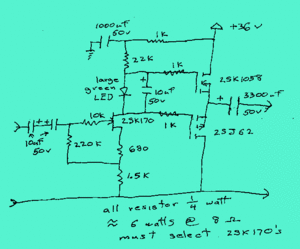 1000uF
60v
1K
+36v
22K
1K
large
green
LED
10uF
50v
2SK1058
3300uF
50v
10k
2SK170
1K
2SJ62
10uF
50v
220K
680
45K
all resistor 1/4 watt
≈ 6 watts @ 8 Ω
must select 2SK170's